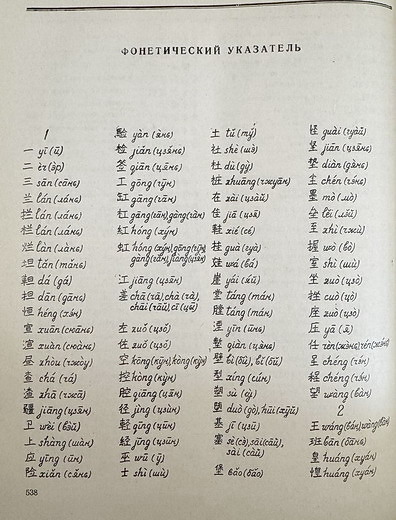 ФОНЕТИЧЕСКИЙ УКАЗАТЕЛЬ
1
一 yī (ӣ)
二 èr (э̀р)
三 sān (са̄нь)
兰 lán (ла́нь)
拦 lán (ла́нь)
栏 lán (ла́нь)
烂 làn (ла̀нь)
坦 tǎn (та̌нь)
靼 dá (да́)
担 dān (да̄нь)
恒 héng (хэ́н)
宣 xuān (сюа̄нь)
昼 zhòu (чжо̀у)
查 chá (ча́)
渣 zhā (чжа̄)
疆 jiāng (цзя̄н)
卫 wèi (вэ̀й)
上 shàng (ша̀н)
应 yīng (ӣн)
险 xiǎn (ся̌нь)
验 yàn (я̀нь)
检 jiǎn (цзя̌нь)
签 qiān (ця̄нь)
工 gōng (гӯн)
缸 gāng (га̄н)
杠 gāng (га̄н), gàng (га̀н)
红 hóng (ху́н)
虹 hóng (ху́н), gōng (гӯн)
江 jiāng (цзя̄н)
差 chā (ча̄), chà (ча̀),
chāi (ча̄й), cī (цы̄)
左 zuǒ (цзǒ)
佐 zuǒ (цзǒ)
空 kōng (кӯн), kòng (ку̀н)
控 kòng (ку̀н)
腔 qiāng (ця̄н)
径 jìng (цзѝн)
轻 qīng (цӣн)
巫 wū (ӯ)
士 shì (шѝ)
土 tǔ (ту̌)
社 shè (шэ̀)
杜 dù (ду̀)
桩 zhuāng (чжуа̄н)
在 zài (цза̀й)
佳 jiā (цзя̄)
鞋 xié (се́)
挂 guà (гуа̀)
崖 yái (я́й)
堂 táng (та́н)
膛 táng (та́н)
湮 yīn (ӣнь)
堑 qiàn (ця̀нь)
壁 bì (бѝ)
型 xíng (си́н)
塑 sù (су̀)
堕 duò (дò), huī (хуэ̄й)
基 jī (цзӣ)
塞 sè (сэ̀), sāi (са̄й),
sài (са̀й)
堡 bǎo (ба̌о)
怪 guài (гуа̀й)
坚 jiān (цзя̄нь)
垫 diàn (дя̀нь)
尘 chén (чэ́нь)
墨 mò (мò)
垒 lěi (лэ̌й)
至 zhì (чжѝ)
握 wò (вò)
室 shì (шѝ)
坐 zuò (цзò)
挫 cuò (цò)
座 zuò (цзò)
压 yā (я̄)
任 rèn (жэ̀нь), rén (жэ́нь)
呈 chéng (чэ́н)
程 chéng (чэ́н)
望 wàng (ва̀н)
2
王 wáng (ва́н), wàng (ва̀н)
班 bān (ба̄нь)
皇 huáng (хуа́н)
惶 huáng (хуа́н)
538